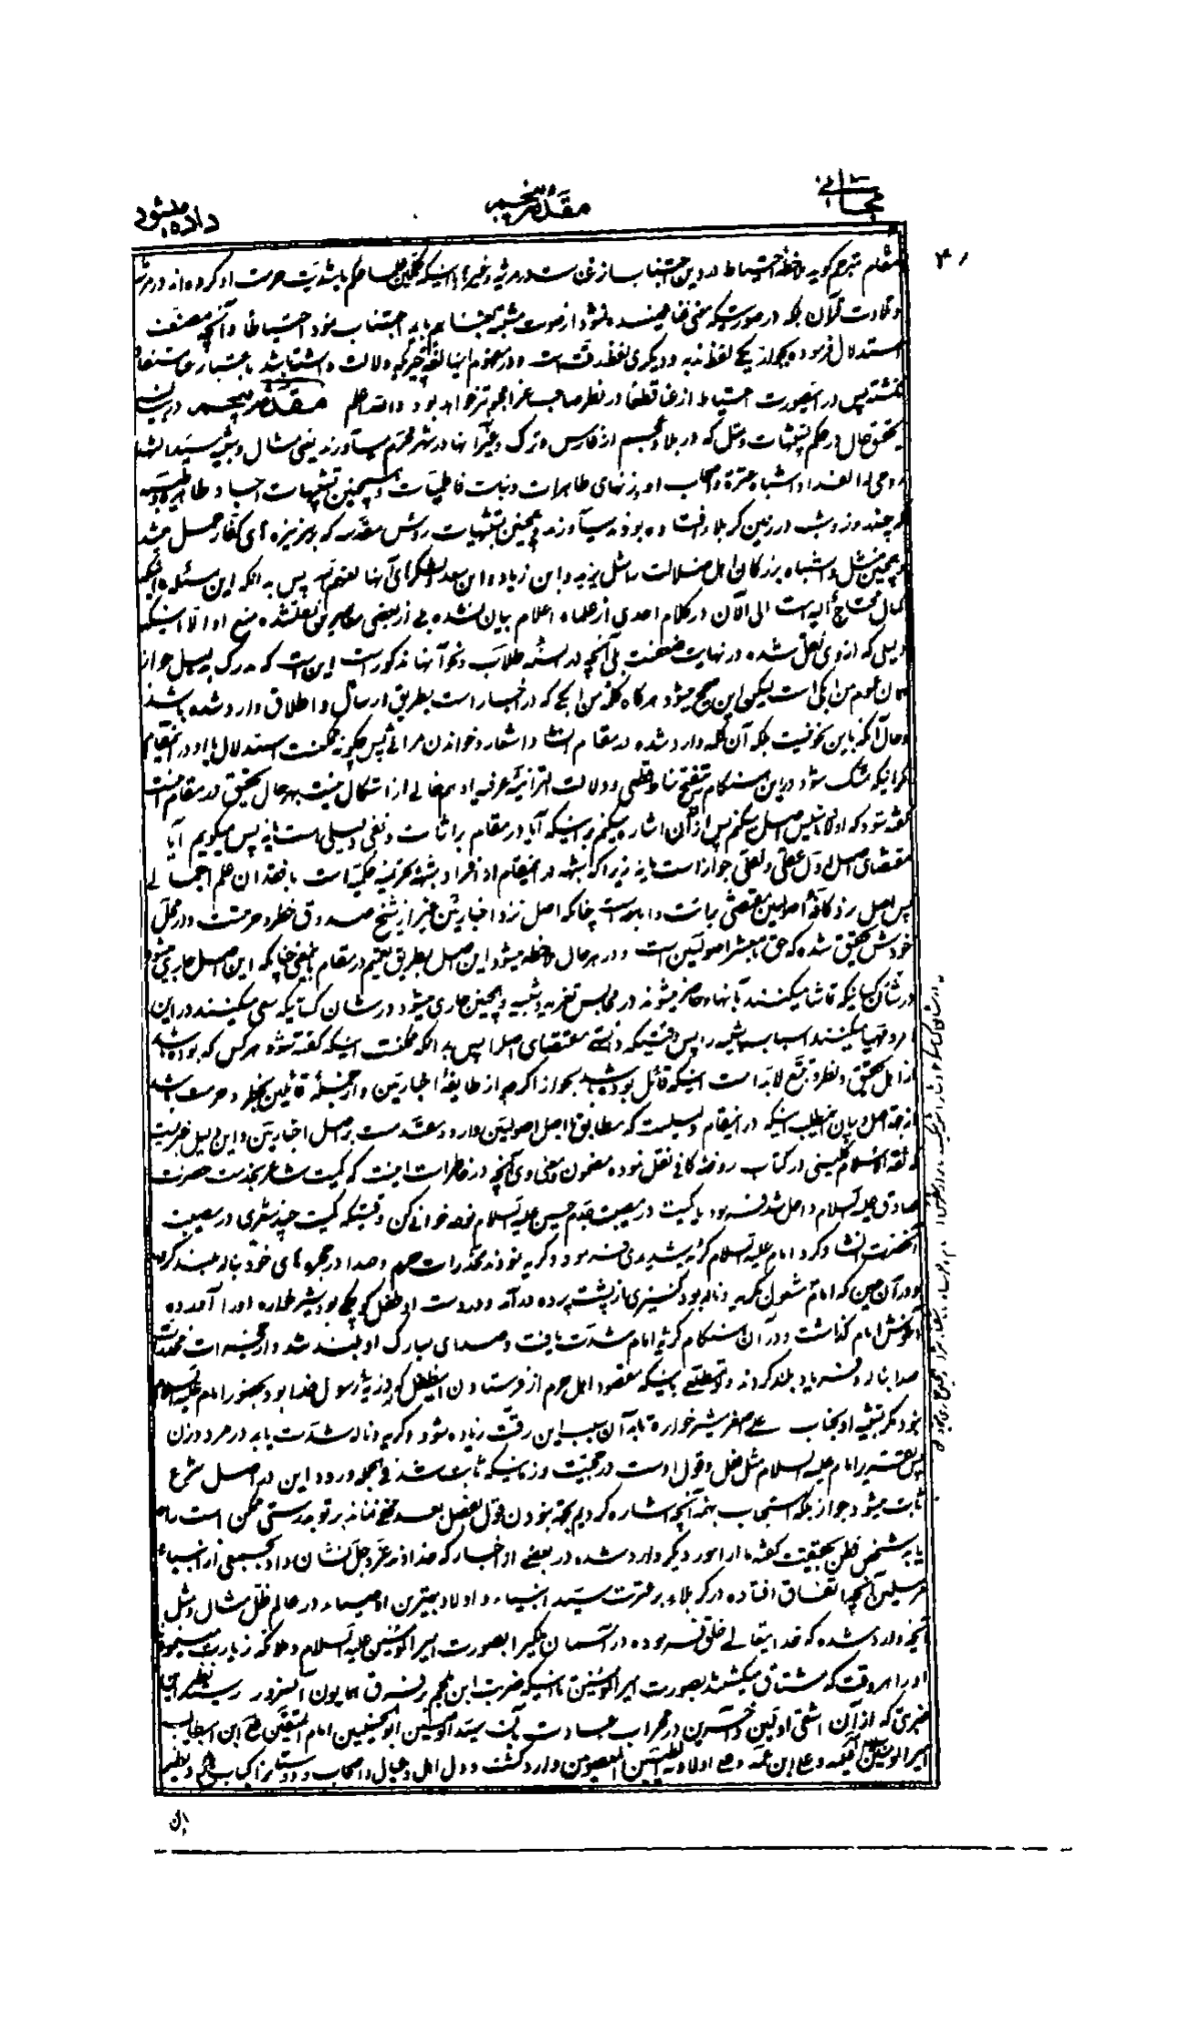 مقدمه پنجم
داده میشود
مقام مترجم گوید ملاحظهٔ احتیاط در این اجتناب از غنا است در مرثیه و غیر
و تلاوت قرآن بلکه در صورتیکه معنی غنا فهمیده نشود از صوت مشتبه بغنا هم باید اجتناب نمود احتیاطا و آنچه مصنف
استدلال فرموده بجواز یکی لفظ ندبه و دیگری لفظ رقت است و در مفهوم اینها لغة
پس در اینصورت احتیاط از غنا قطعا در نظر صاحب خواهد بود والله اعلم مقدمه پنجم در بیان
تحقیق حال در حکم تشبیهات و مثل که در بلاد عجم از فارس و ترک و غیر آنها در شهر محرم میآورند یعنی مثال و شبیه سید الشهدا
روحی له الفداء و اشباه عترة و اصحاب او و زنهای طاهرات و بنات فاطمیات و همچنین تشبیهات اجساد طاهره
که چند روز و شب در زمین کربلا افتاده بودند میآورند و همچنین تشبیهات رؤس مقدسه که بر نیزه های کفار حمل میشد
و همچنین مثل و اشباه بزرگان اهل ضلالت را مثل یزید و ابن زیاد و ابن سعد و لشکرهای آنها پس بدانکه این مسئله
الی الآن در کلام احدی از علماء اعلام بیان نشده بلی از بعضی معاصرین نقلشده منع او الا اینکه
دلیلی که از وی نقل شده در نهایت ضعفست بلی آنچه در السنهٔ طلاب و نحو آنها مذکور است این است که مدرک دلیل جواز
همان عموم من ابکی است لیکن این صحیح میشود هرگاه کلمه من ابکی که در اخبار است بطریق ارسال و اطلاق وارد شده باشد
و حال آنکه باین نحو نیست بلکه آن کلمه وارد شده در مقام انشاد اشعار و خواندن مراثی پس چگونه ممکنست استدلال باو در اینمقام
مگر اینکه تمسک شود در این هنگام بتنقیح مناط قطعی و دلالت التزامیهٔ عرفیه او هم خالی از اشکال نیست بهر حال تحقیق در مقام اینست
گفته شود که اولا تأسیس اصل میکنم پس از آن اشاره میکنم بر اینکه آیا در مقام برا ثبات و نفی دلیلی هست یا نه پس میگویم آیا
مقتضای اصل اول عقلی و نقلی جواز است یا نه زیرا که شبهه در اینمقام از افراد شبههٔ تحریمیه حکمیه است با فقدان علم اجمالی
پس اصل نزد کافهٔ اصولیین مقتضی برائت و اباحه است چنانکه اصل نزد اخباریین غیر از شیخ صدوق حظر و حرمتست و در محل
خودش تحقیق شده که حق با معشر اصولیین است و در هر حال ملاحظه میشود این اصل بطریق تعمیم در مقام یعنی چنانکه این اصل جاری میشود
در شأن کسانیکه تماشا میکنند بآنها و حاضر میشوند در مجالس تعزیه و شبیه و همچنین جاری میشود در شأن کسانیکه سعی میکنند در این
امر و مهیا میکنند اسباب شبیه را پس وقتیکه دانستی مقتضای اصل را پس بدانکه ممکنست اینکه گفته شود هر کس که بوده باشد
از اهل تحقیق و نظر و تتبع لابد است اینکه قائل بوده باشد بجواز اگرچه از طایفهٔ اخباریین و از جملهٔ قائلین بحظر و حرمت باشد
از جهت اصل و بیان مطلب اینکه در اینمقام دلیلیست که مطابق با اصل اصولیین وارد و مقدمست بر اصل اخباریین و این دلیل خبریست
که ثقة الاسلام کلینی در کتاب روضهٔ کافی نقل نموده مضمون و معنی وی آنچه در خاطر است اینست که کمیت شاعر بخدمت حضرت
صادق علیه السلام داخل شد فرمود یا کمیت در مصیبت جدم حسین علیه السلام نوحه خوانی کن وقتیکه کمیت چند شعری در مصیبت
آنحضرت انشاد کرد امام علیه السلام گریهٔ شدیدی فرمود و گریه نمودند مخدرات حرم و صدا در حجره های خود بناله بلند کردند
و در آن حین که امام مشغول گریه و ناله بود کنیزی از پشت پرده در آمد و در دست او طفل کوچکی بود شیرخواره او را آمد و در
آغوش امام گذاشت و در آن هنگام گریه امام شدت یافت و صدای مبارک او بلند شد و از حجرات مخدرات
صدا بناله و فریاد بلند کردند اینکه مقصود اهل حرم از فرستادن این طفل که از ذریهٔ رسول خدا بود بحضور امام علیه السلام
نبود مگر تشبیه او بجناب علی اصغر شیرخواره تا بآن سبب این رقت زیاده شود و گریه و ناله شدت یابد در مرد و زن
پس تقریر امام علیه السلام مثل فعل و قول اوست در حجیت و زمانیکه ثابت شد فی الجمله ورود این در اصل شرع
ثابت میشود جواز بلکه استحباب بهمه آنچه اشاره کردیم بجهة نبودن قول بفصل بعد مخفی نماند بر تو بدرستی ممکن است راه
یابد شخص فطن بحقیقت گفته ما از امور دیگر وارد شده در بعضی از اخبار که خداوند عز و جل نشان داد بجمیع از انبیاء
مرسلین آنچه اتفاق افتاده در کربلاء بر عترت سید انبیاء و اولاد بهترین اوصیاء در عالم ظل مثال و مثل
آنچه وارد شده که خدایتعالی خلق فرموده در آسمان ملکی را بصورت امیرالمؤمنین علیه السلام و ملائکه زیارت مینمودند
او را هر وقت که مشتاق میگشتند بصورت امیرالمؤمنین تا اینکه ضربت ابن ملجم بر فرق همایون آنسرور رسید
ضربتی که از آن اشقی اولین و آخرین در محراب عبادت بآن سید المؤمنین ابوالحسنین امام المتقین علی ابن ابیطالب
امیرالمؤمنین وارد گشت و دل اهل و عیال و اصحاب و دوستانرا کباب